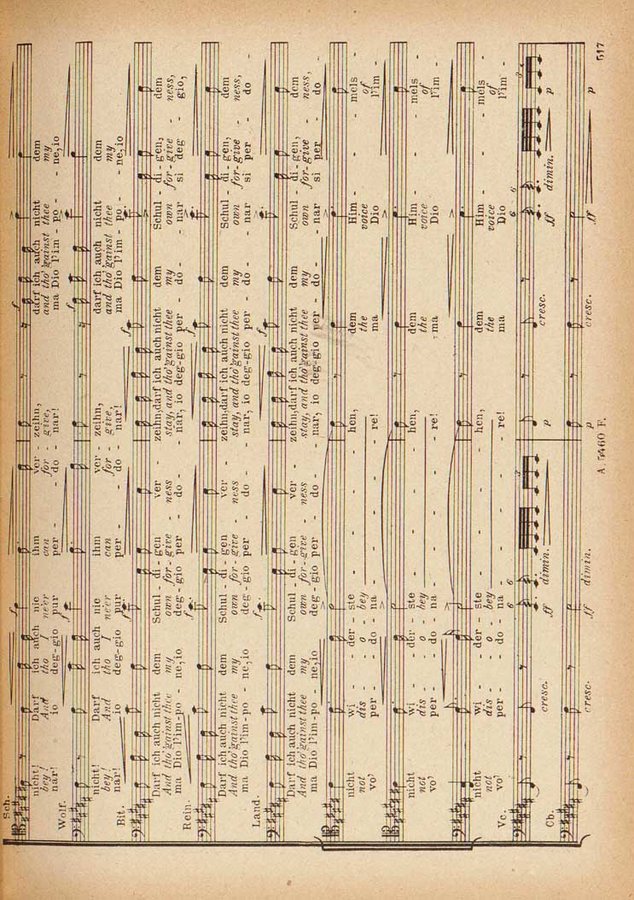 Sch.
nicht! Darf ich auch nie ihm ver - zeihn, darf ich auch nicht dem
bey! And tho I ne'er can for - give, and tho' gainst thee my
nar! io deg-gio pur per - do - nar! ma Dio l'im - po - ne, io
Wolf.
nicht! Darf ich auch nie ihm ver - zeihn, darf ich auch nicht dem
bey! And tho I ne'er can for - give, and tho' gainst thee my
nar! io deg-gio pur per - do - nar! ma Dio l'im - po - ne, io
Bit.
Darf ich auch nicht dem Schul - di - gen ver - zeihn, darf ich auch nicht dem Schul - di - gen, dem
And tho' gainst thee my own for - give - ness stay, and tho' gainst thee my own for - give - ness,
ma Dio l'im - po - ne, io deg - gio per - do - nar, io deg - gio per - do - nar si deg - gio,
Rein.
Darf ich auch nicht dem Schul - di - gen ver - zeihn, darf ich auch nicht dem Schul - di - gen, dem
And tho' gainst thee my own for - give - ness stay, and tho' gainst thee my own for - give - ness,
ma Dio l'im - po - ne, io deg - gio per - do - nar, io deg - gio per - do - nar si per - do -
Land.
Darf ich auch nicht dem Schul - di - gen ver - zeihn, darf ich auch nicht dem Schul - di - gen, dem
And tho' gainst thee my own for - give - ness stay, and tho' gainst thee my own for - give - ness,
ma Dio l'im - po - ne, io deg - gio per - do - nar, io deg - gio per - do - nar si per - do -
nicht wi - der - ste - hen, dem Him - mels -
not dis - o - bey the voice of
vo' per - do - na - re! ma Dio l'im -
nicht wi - der - ste - hen, dem Him - mels -
not dis - o - bey the voice of
vo' per - do - na - re! ma Dio l'im -
nicht wi - der - ste - hen, dem Him - mels -
not dis - o - bey the voice of
vo' per - do - na - re! ma Dio l'im -
Vc.
cresc. ff dimin. p cresc. ff dimin. p
Cb.
cresc. ff dimin. p cresc. ff p
A. 5460 E.
517